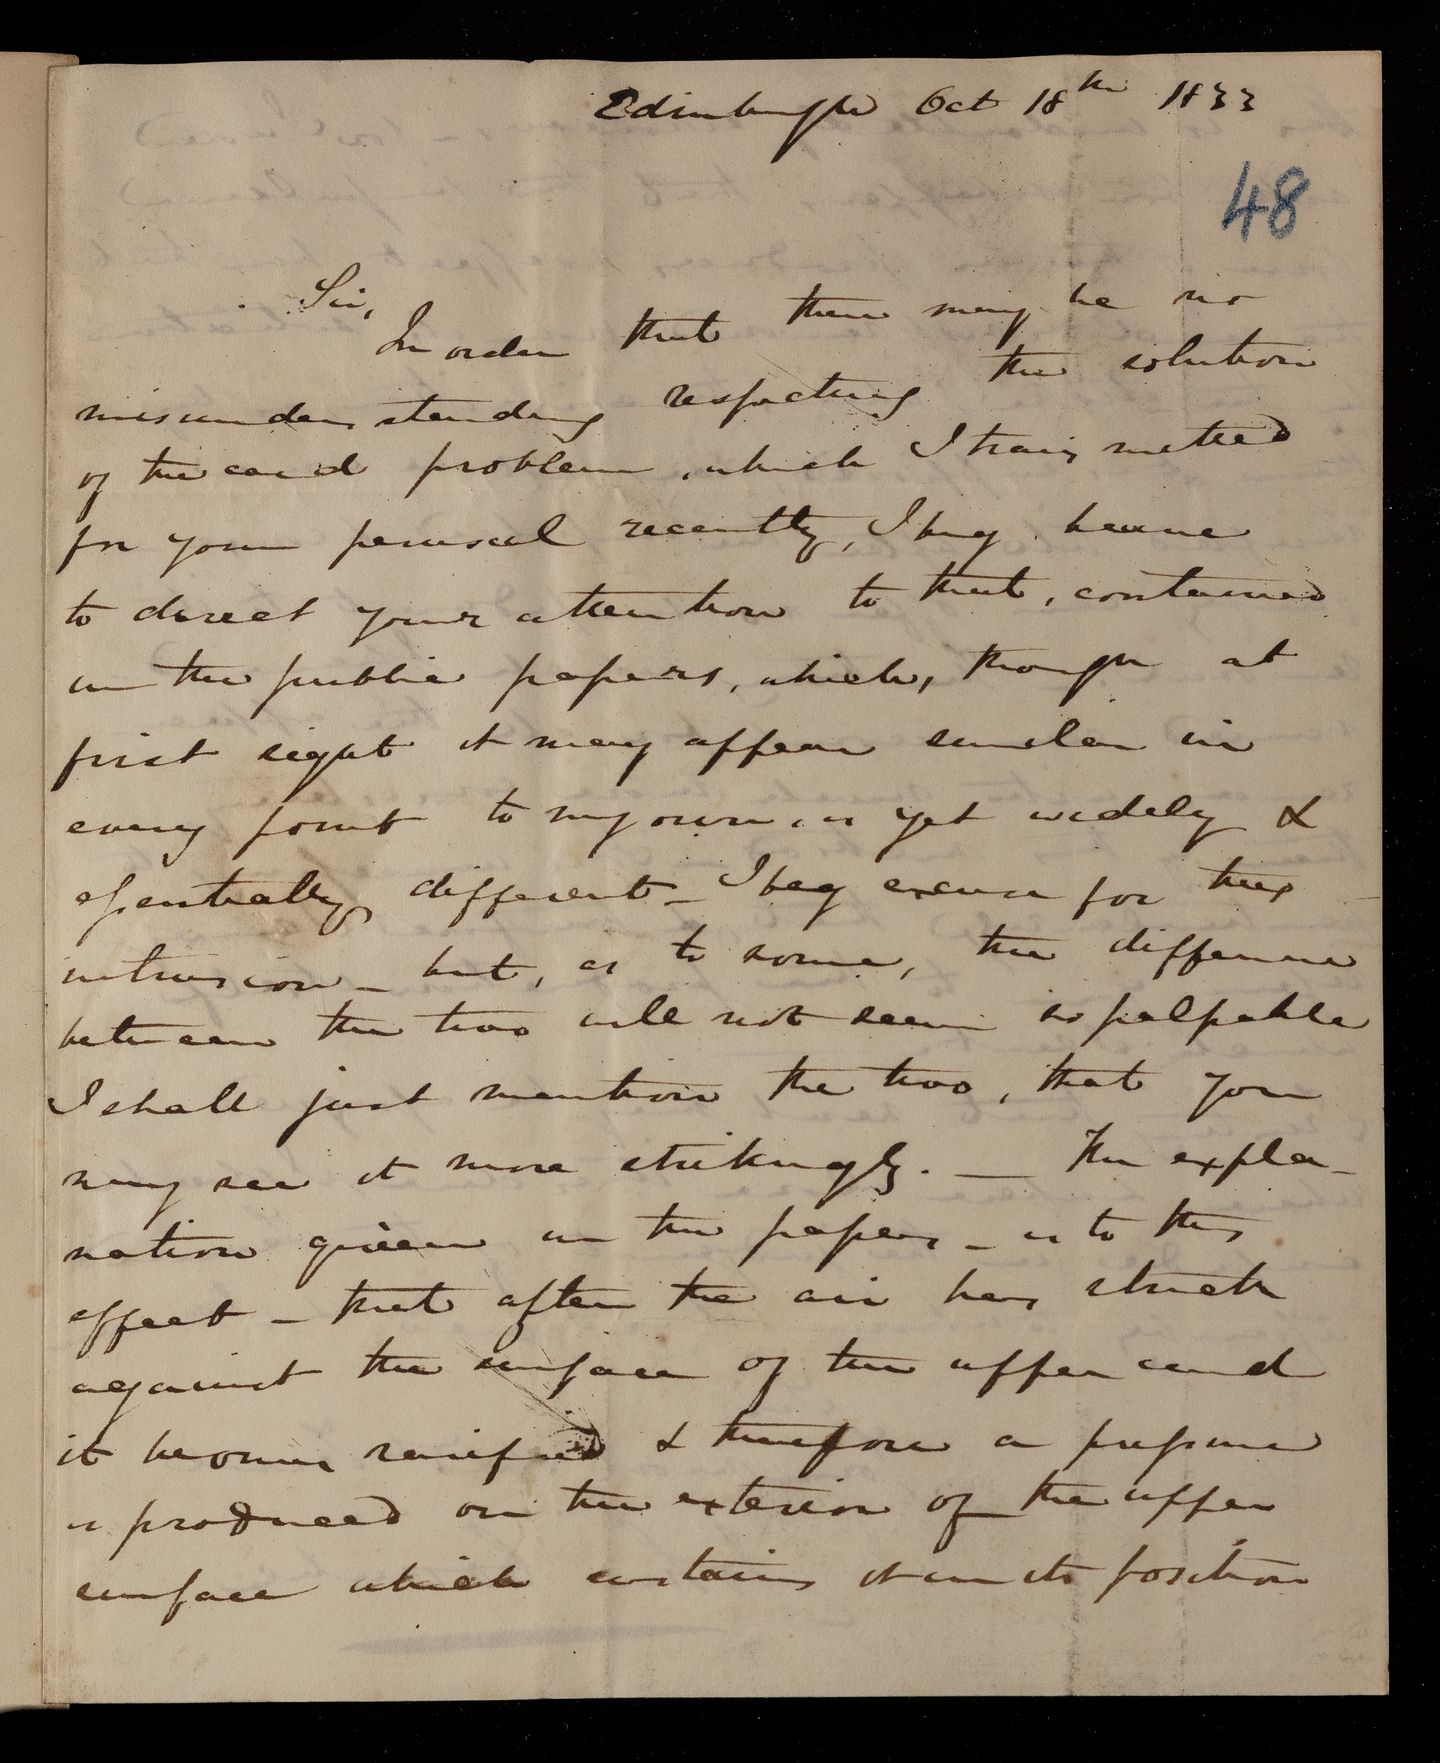 Edinburgh Oct 18th 1833
48
Sir,
In order that there may be no
misunderstanding respecting the solution
of the card problem, which I transmitted
for your perusal recently, I beg leave
to direct your attention to that, contained
in the public papers, which, though at
first sight it may appear similar in
every point to my own, is yet widely &
essentially different – I beg excuse for this
intrusion – but, as to some, the difference
between the two will not seem so palpable
I shall just mention the two, that you
may see it more strikingly. — The expla-
nation given in the papers – is to this
effect – that after the air has struck
against the surface of the upper card
it becomes rarified & therefore a pressure
is produced on the exterior of the upper
surface which sustains it in its position